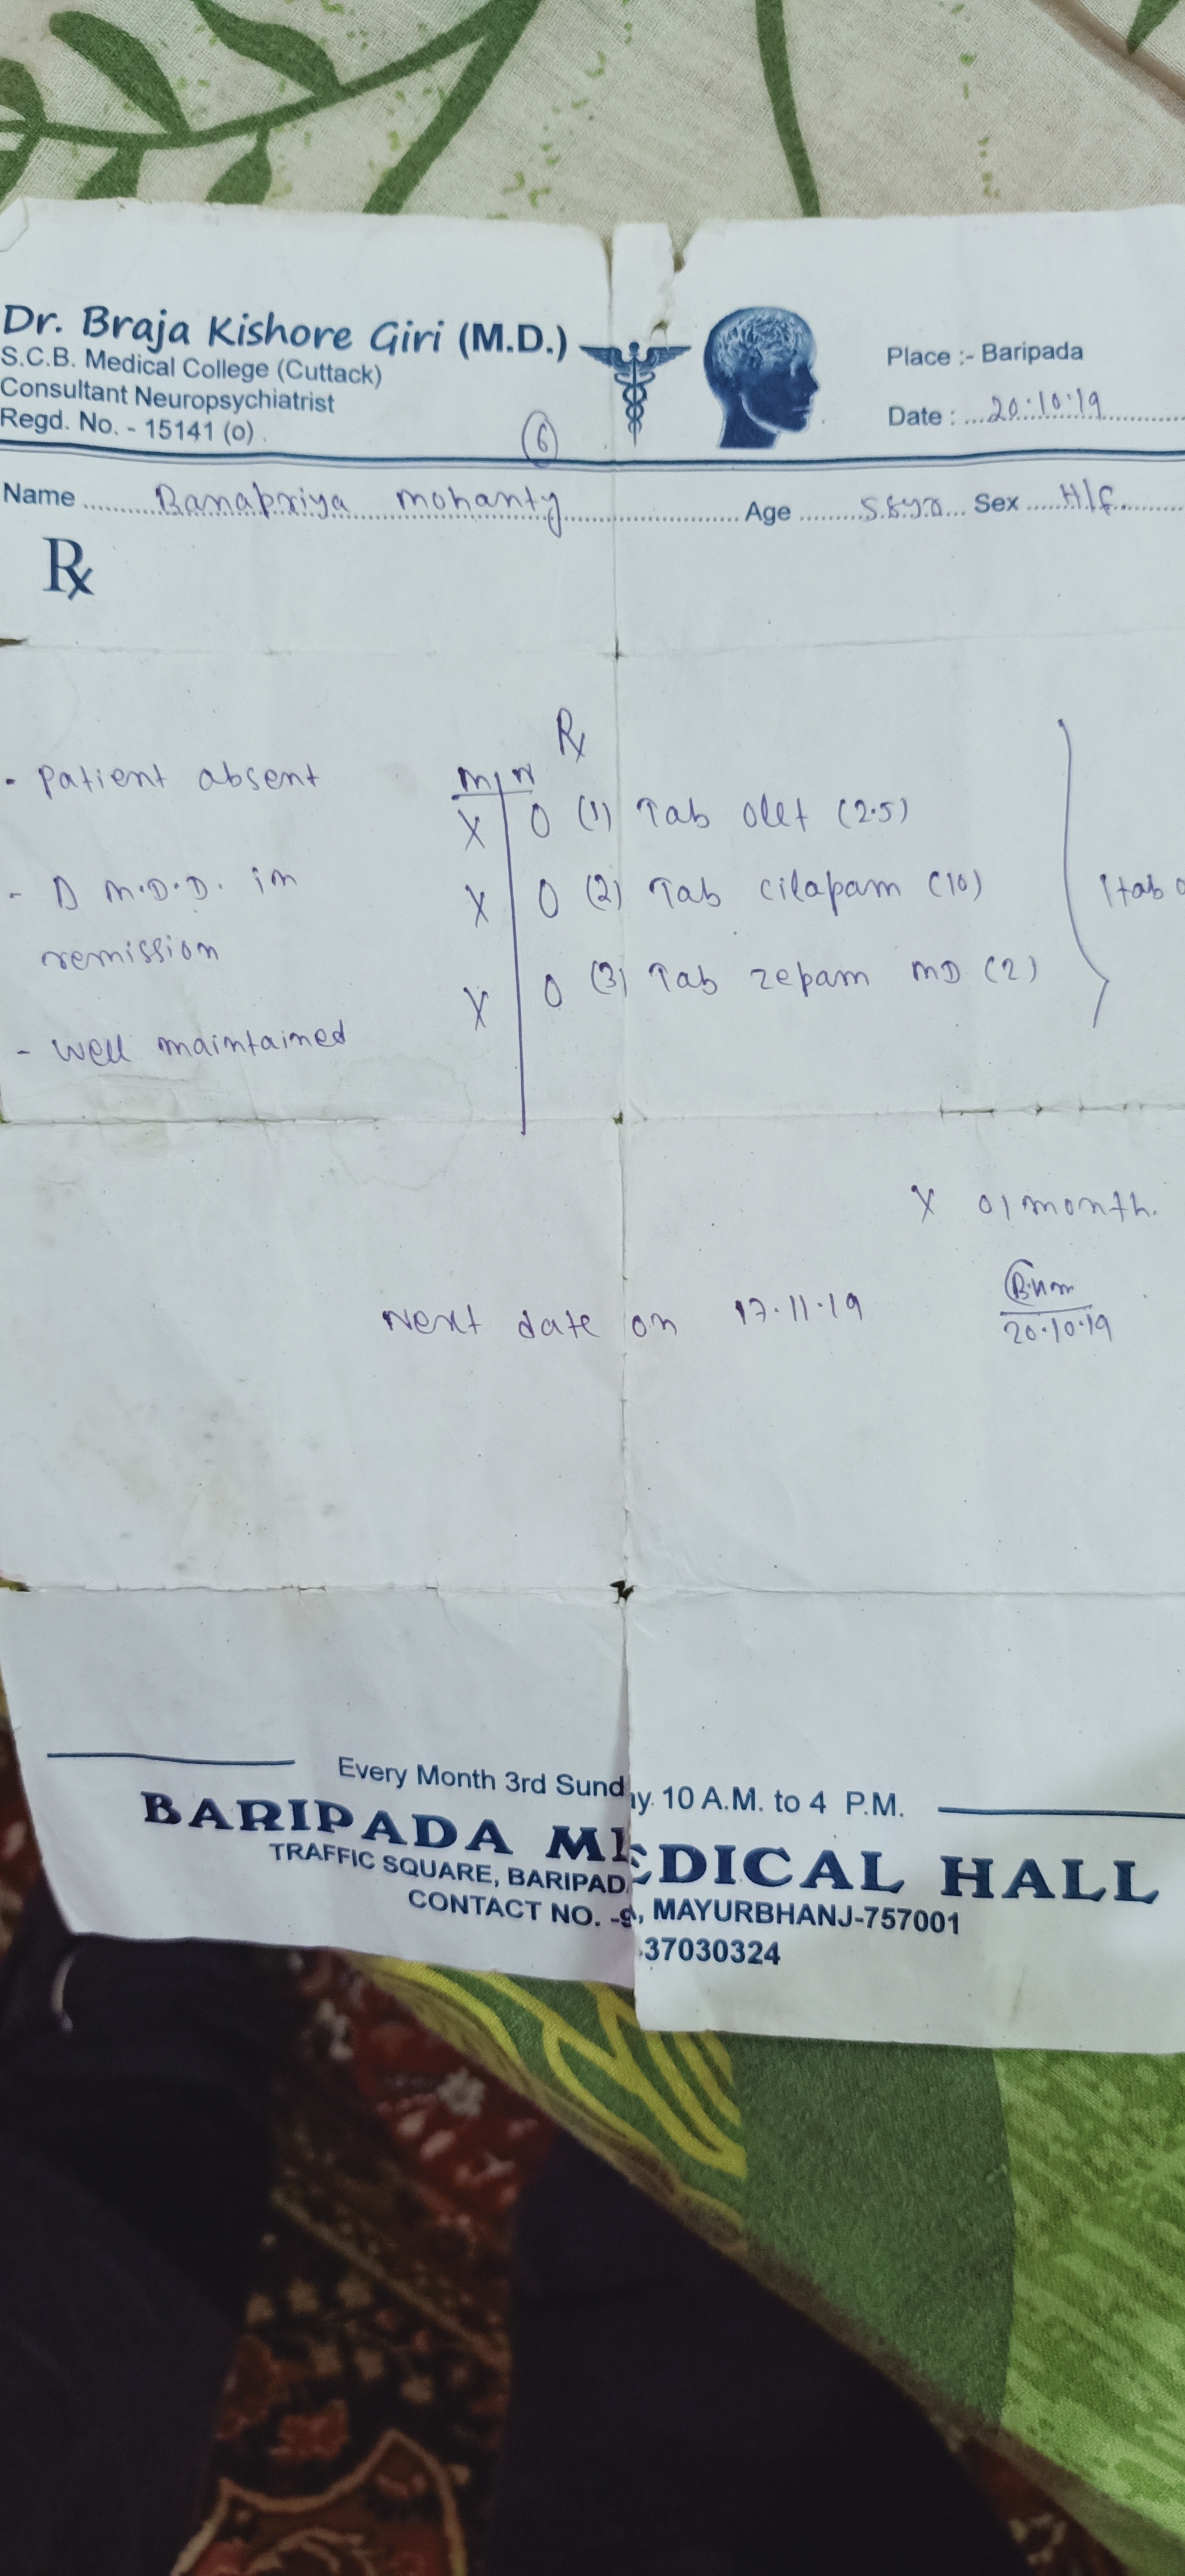 Dr. Braja Kishore Giri (M.D.)
S.C.B. Medical College (Cuttack)
Consultant Neuropsychiatrist
Regd. No. - 15141 (o)
6
Place :- Baripada
Date : ... 20.10.19
Name ..... Banapriya mohanty ..... Age ..... Sex ..... H/F.
Rx
Rx
- Patient absent
M | N
X | 0 (1) Tab olet (2.5)
- D M.D.D. in
remission
X | 0 (2) Tab cilapam (10)
X | 0 (3) Tab zepam MD (2)
1tab
- Well maintained
X 01 month.
Next date on 17.11.19
20.10.19
Every Month 3rd Sunday 10 A.M. to 4 P.M.
BARIPADA MEDICAL HALL
TRAFFIC SQUARE, BARIPADA, MAYURBHANJ-757001
CONTACT NO. -9 37030324